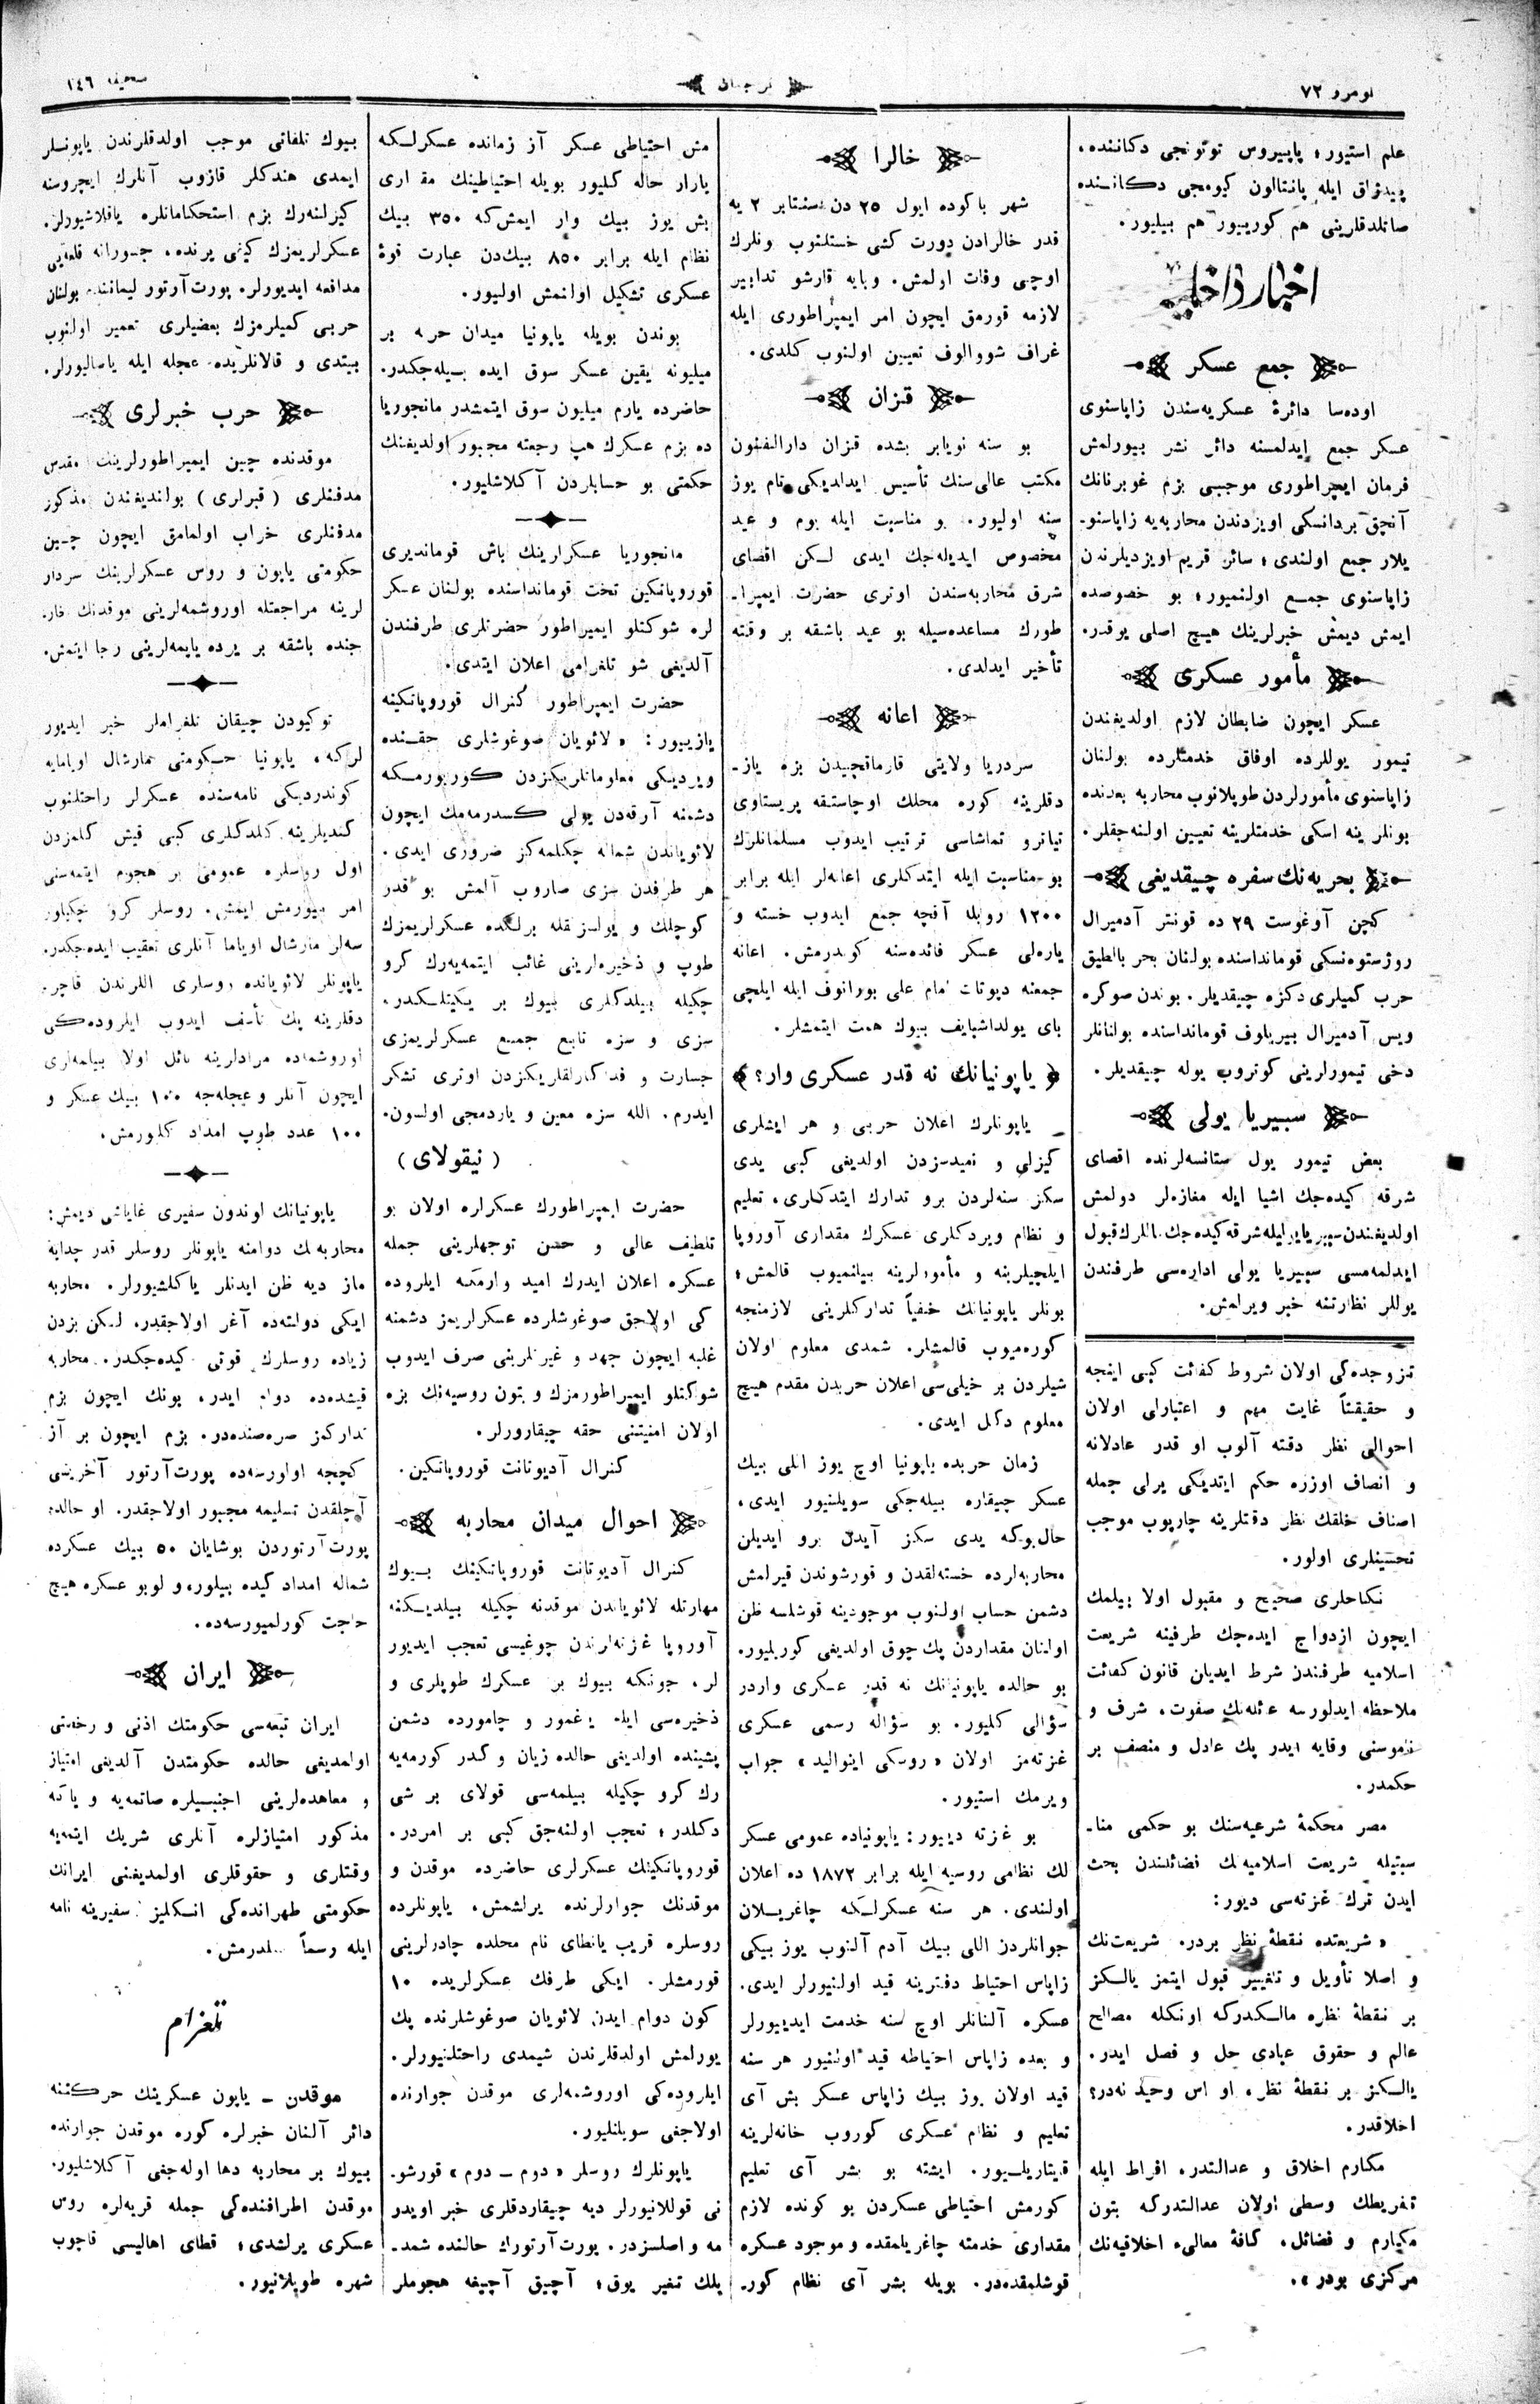 نومرو ٧٢
ترجمان
صحيفه ١٤٦
علم استيور؛ پاپيروس توتونجى دكاننده،
پيدژاق ايله پانتالون كيومجى دكاننده
صاتلدقلرينى هم كوريیور هم بيليور.
اخبار داخليه
جمع عسكر
اوده‌سا دائرۀ عسكريه‌سندن زاپاسنوى
عسكر جمع ايدلمسنه دائر نشر بيورلمش
فرمان ايمپراطورى موجبى بزم غوبرنانك
آنجق بردانسكى اويزدندن محاربه‌يه زاپاسنو-
يلار جمع اولندى؛ سائر قريم اويزديلرندن
زاپاسنوى جمع اولنميور؛ بو خصوصده
ايمش ديمش خبرلرينك هيچ اصلى يوقدر.
مأمور عسكرى
عسكر ايچون ضابطان لازم اولديغندن
تيمور يوللرده اوفاق خدمتلرده بولنان
زاپاسنوى مأمورلردن طوپلانوب محاربه بعدنده
بونلر ينه اسكى خدمتلرينه تعيين اولنه‌جقلر.
بحريه‌نك سفره چيقديغى
كچن آوغوست ٢٩ ده قونتر آدميرال
روژستوه‌نسكى قوماندا‌سنده بولنان بحر بالطيق
حرب كميلرى دكزه چيقديلر. بوندن صوكره
ويس آدميرال بيريلوف قومانداسنده بولنانلر
دخى تيمورلرينى كوتروب يوله چيقديلر.
سبيريا يولى
بعض تيمور يول ستانسه‌لرنده اقصاى
شرقه كيده‌جك اشيا ايله مغازه‌لر دولمش
اولديغندن سيبريا يولى ايله شرقه كيده‌جك ماللرك قبول
ايدلمه‌مسى سيبريا يولى اداره‌سى طرفندن
يوللر نظارتنه خبر ويرلمش.
تزوجده‌كى اولان شروط كفائت كبى اينجه
و حقيقتاً غايت مهم و اعتبارلى اولان
احوالى نظر دقته آلوب او قدر عادلانه
و انصاف اوزره حكم ايتديكى يرلى جمله
اصناف خلقك نظر دقتلرينه چارپوب موجب
تحسينلرى اولور.
نكاحلرى صحيح و مقبول اولا بيلمك
ايچون ازدواج ايده‌جك طرفينه شريعت
اسلاميه طرفندن شرط ايديلن قانون كفائت
ملاحظه ايدلورسه عائله‌نك صفوت، شرف و
ناموسنى وقايه ايدر پك عادل و منصف بر
حكمدر.
مصر محكمۀ شرعيه‌سنك بو حكمى منا-
سبتيله شريعت اسلاميه‌نك فضائلندن بحث
ايدن ترك غزته‌سى ديور:
«شريعتده نقطۀ نظر بردر. شريعت‌نك
و اصلا تأويل و تغيير قبول ايتمز يالكز
بر نقطۀ نظره مالكدركه اونكله مصالح
عالم و حقوق عبادى حل و فصل ايدر.
يالكز بر نقطۀ نظر، او اس وحيد نه‌در؟
اخلاقدر.
مكارم اخلاق و عدالتدر. افراط ايله
تفريطك وسطى اولان عدالتدركه بتون
مكارم و فضائل، كافۀ معالىء اخلاقيه‌نك
مركزى بودر».
خالرا
شهر باكوده ايول ٢٥ دن سنتابر ٢ يه
قدر خالرادن دورت كشى خستلنوب ونلرك
اوچى وفات اولمش. وبايه قارشو تدابير
لازمه قورمق ايچون امر ايمپراطورى ايله
غراف شووالوف تعيين اولنوب كلدى.
قزان
بو سنه نويابر بشده قزان دارالفنون
مكتب عالى‌سنك تأسيس ايدلديكى تام يوز
سنه اوليور. بو مناسبت ايله يوم و عيد
مخصوص ايديله‌جك ايدى لكن اقصاى
شرق محاربه‌سندن اوترى حضرت ايمپرا-
طورك مساعده‌سيله بو عيد باشقه بر وقته
تأخير ايدلدى.
اعانه
سردريا ولايتى قارماقچيدن بزه ياز-
دقلرينه كوره محلك اوچاستقه پريستاوى
تياترو تماشاسى ترتيب ايدوب مسلمانلرك
بو مناسبت ايله ايتدكلرى اعانه‌لر ايله برابر
١٢٠٠ روبله آقچه جمع ايدوب خسته و
يارەلى عسكر فائده‌سنه كوندرمش. اعانه
جمعنه ديوتات امام على بورانوف ايله ايلچى
باى يولداشبايف بيوك همت ايتمشلر.
ياپونيانك نه قدر عسكرى وار؟
ياپونلرك اعلان حربى و هر ايشلرى
كيزلى و نميدسزدن اولديغى كبى يدى
سكز سنه‌لردن برو تدارك ايتدكلرى، تعليم
و نظام ويردكلرى عسكرك مقدارى آوروپا
ايلچيلرينه و مأمورلرينه بيلنميوب قالمش؛
بونلر ياپونيانك خفياً تداركلرينى لازمنجه
كوره‌ميوب قالمشلر. شمدى معلوم اولان
شيلردن بر خيلى‌سى اعلان حربدن مقدم هيچ
معلوم دكل ايدى.
زمان حربده ياپونيا اوچ يوز اللى بيك
عسكر چيقاره بيله‌جكى سويلنيور ايدى،
حال‌بوكه يدى سكز آيدن برو ايديلن
محاربه‌لرده خسته‌لقدن و قورشوندن قيرلمش
دشمن حساب اولنوب موجودينه قوشلسه ظن
اولنان مقداردن پك چوق اولديغى كوريليور.
بو حالده ياپونيانك نه قدر عسكرى واردر
سؤالى كليور. بو سؤاله رسمى عسكرى
غزته‌مز اولان «روسكى اينواليد» جواب
ويرمك استيور.
بو غزته ديیور: ياپونياده عمومى عسكر
لك نظامى روسيه ايله برابر ١٨٧٢ ده اعلان
اولندى. هر سنه عسكرلكه چاغريلان
جوانلردن اللى بيك آدم آلنوب يوز بيكى
زاپاس احتياط دفترينه قيد اولنيورلر ايدى.
عسكره آلنانلر اوچ سنه خدمت ايديیورلر
و بعده زاپاس احتياطه قيد اولنيور هر سنه
قيد اولان يوز بيك زاپاس عسكر بش آى
تعليم و نظام عسكرى كوروب خانه‌لرينه
قيتاريليور. ايشته بو بشر آى تعليم
كورمش احتياطى عسكردن بو كونده لازم
مقدارى خدمته چاغريلمقده و موجود عسكره
قوشلمقده‌در. بويله بشر آى نظام كور-
مش احتياطى عسكر آز زمانده عسكرلكه
يارار حاله كليور بويله احتياطينك مقدارى
بش يوز بيك وار ايمش‌كه ٣٥٠ بيك
نظام ايله برابر ٨٥٠ بيك‌دن عبارت قوۀ
عسكرى تشكيل اولنمش اوليور.
بوندن بويله ياپونيا ميدان حربه بر
ميليونه يقين عسكر سوق ايده بيله‌جكدر.
حاضرده يارم ميليون سوق ايتمشدر مانجوريا
ده بزم عسكرك هپ رجعته مجبور اولديغنك
حكمتى بو حسابلردن آكلاشليور.
مانجوريا عسكرلرينك باش قومانديرى
قوروپاتكين تحت قوماندا‌سنده بولنان عسكر
لره شوكتلو ايمپراطور حضرتلرى طرفندن
آلديغى شو تلغرامى اعلان ايتدى.
حضرت ايمپراطور كنرال قوروپاتكينه
يازييور: «لائويان صوغوشلرى حقنده
ويرديكى معلوماتلريكزدن كوريورمكه
دشمنه آرقه‌دن يولى كسدرمه‌مك ايچون
لائوياندن شماله چكلمه‌كز ضرورى ايدى.
هر طرفدن سزى صاروب آلمش بو قدر
كوچلك و يولسزلقله برلكده عسكرلريمزك
طوپ و ذخيره‌لرينى غائب ايتمه‌يه‌رك كرو
چكيله بيلدكلرى بيوك بر يكيتلكدر.
سزى و سزه تابع جميع عسكرلريمزى
جسارت و فداكارلقلريكزدن اوترى تشكر
ايدرم. الله سزه معين و ياردمجى اولسون.
(نيقولاى)
حضرت ايمپراطورك عسكرلره اولان بو
تلطيف عالى و حسن توجهلرينى جمله
عسكره اعلان ايدرك اميد وارمكه ايلروده
كى اولاجق صوغوشلرده عسكرلريمز دشمنه
غلبه ايچون جهد و غيرتلرينى صرف ايدوب
شوكتلو ايمپراطورمزك و بتون روسيه‌نك بزه
اولان امنيتنى حقه چيقارورلر.
كنرال آديوتانت قوروپاتكين.
احوال ميدان محاربه
كنرال آديوتانت قوروپاتكينك بيوك
مهارتله لائوياندن موقدنه چكيله بيلديكنه
آوروپا غزته‌لرندن چوغيسى تعجب ايديور
لر، چونكه بيوك بر عسكرك طوپلرى و
ذخيره‌سى ايله يغمور و چامورده دشمن
پشينده اولديغى حالده زيان و كدر كورمه‌يه
رك كرو چكيله بيلمه‌سى قولاى بر شى
دكلدر؛ تعجب اولنه‌جق كبى بر امردر.
قوروپاتكينك عسكرلرى حاضرده موقدن و
موقدنك جوارلرنده يرلشمش، ياپونلرده
روسلره قريب يانطاى نام محلده چادرلرينى
قورمشلر. ايكى طرفك عسكرلريده ١٠
كون دوام ايدن لائويان صوغوشلرنده پك
يورلمش اولدقلرندن شيمدى راحتلنيورلر.
ايلروده‌كى اوروشمه‌لرى موقدن جوارنده
اولاجغى سويلنليور.
ياپونلرك روسلر «دوم - دوم» قورشو-
نى قوللانيورلر ديه چيقاردقلرى خبر اويدر
مه و اصلسزدر. پورت‌آرتورك حالنده شمد-
يلك تغير يوق؛ آچيق آچيغه هجوملر
بيوك تلفاتى موجب اولدقلرندن ياپونسلر
ايمدى هندكلر قازوب آنلرك ايچروسنه
كيزلنه‌رك بزم استحكامانلره ياقلاشيورلر.
عسكرلريمزك كيفى يرنده، جسورانه قلعه‌يى
مدافعه ايديورلر. پورت‌آرتور ليماننده بولنان
حربى كميلرمزك بعضيلرى تعمير اولنوب
بيتدى و قالانلريده عجله ايله ياساليورلر.
حرب خبرلرى
موقدنده چين ايمپراطورلرينك مقدس
مدفنلرى (قبرلرى) بولنديغندن مذكور
مدفنلرى خراب اولمامق ايچون چين
حكومتى ياپون و روس عسكرلرينك سردار
لرينه مراجعتله اوروشمه‌لرينى موقدنك خار-
جنده باشقه بر يرده ياپمه‌لرينى رجا ايتمش.
توكيودن چيقان تلغرامل‌ر خبر ايديور
لركه، ياپونيا حكومتى مارشال اويامايه
كوندرديكى نامه‌سنده عسكرلر راحتلنوب
كنديلرينه كلدكلرى كبى قيش كلمزدن
اول روسلره عمومى بر هجوم ايتمه‌سنى
امر بيورمش ايمش. روسلر كرو چكيلور
سه‌لر مارشال اوياما آنلرى تعقيب ايده‌جكدر.
ياپونلر لائويانده روسلرى اللرندن قاچر-
دقلرينه پك تأسف ايدوب ايلروده‌كى
اوروشمه‌ده مرادلرينه نائل اولا بيلمه‌لرى
ايچون آنلر و عجله‌جه ١٠٠ بيك عسكر و
١٠٠ عدد طوپ امداد كليورمش.
ياپونيانك لوندون سفيرى غاياشى ديمش:
محاربه‌نك دوامنه ياپونلر روسلر قدر چدايه
ماز ديه ظن ايدنلر ياكلشيورلر. محاربه
ايكى دولته‌ده آغر اولاجقدر، ليكن بزدن
زياده روسلرك قوتى كيده‌جكدر. محاربه
قيشده‌ده دوام ايدر، بونك ايچون بزم
تداركمز صره‌صنده‌در. بزم ايچون بر آز
كچجه اولورسه‌ده پورت‌آرتور آخريسى
آچلقدن تسليمه مجبور اولاجقدر. او حالده
پورت‌آرتوردن بوشايان ٥٠ بيك عسكرده
شماله امداد كيده بيلور، و لوبو عسكره هيچ
حاجت كورلميورسه‌ده.
ايران
ايران تبعه‌سى حكومتك اذنى و رخصتى
اولمديغى حالده حكومتدن آلديغى امتياز
و معاهده‌لرينى اجنبيلره صاتمه‌يه و ياكه
مذكور امتيازلره آنلرى شريك ايتمه‌يه
وقتلرى و حقوقلرى اولمديغنى ايرانك
حكومتى طهرانده‌كى انكليز سفيرينه نامه
ايله رسماً بلدرمش.
تلغرام
موقدن - ياپون عسكرينك حركتنه
دائر آلنان خبرلره كوره موقدن جوارنده
بيوك بر محاربه دها اوله‌جغى آكلاشليور.
موقدن اطرافنده‌كى جمله قريه‌لره روس
عسكرى يرلشدى؛ قطاى اهاليسى قاچوب
شهره طوپلانيور.